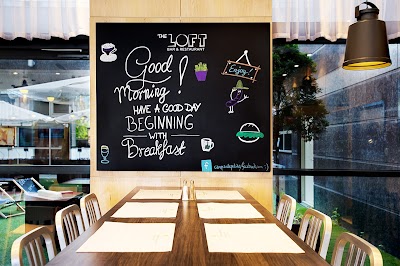 THE LOFT
BAR & RESTAURANT
Good
Morning!
Enjoy..!
HAVE A GOOD DAY
BEGINNING
WITH
Breakfast